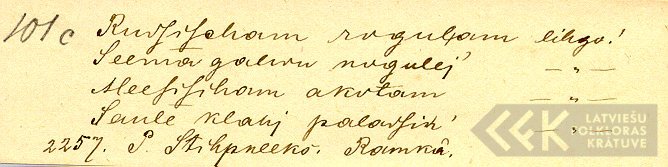 101c Rudsischam rogulam lihgo!
Seemâ galwu nogulej' — „ —
Meesischam akotam — „ —
Saule klahj paladsin' — „ —
2257. P. Stihpneeks. Ramkâ.
LATVIEŠU
FOLKLORAS
KRĀTUVE